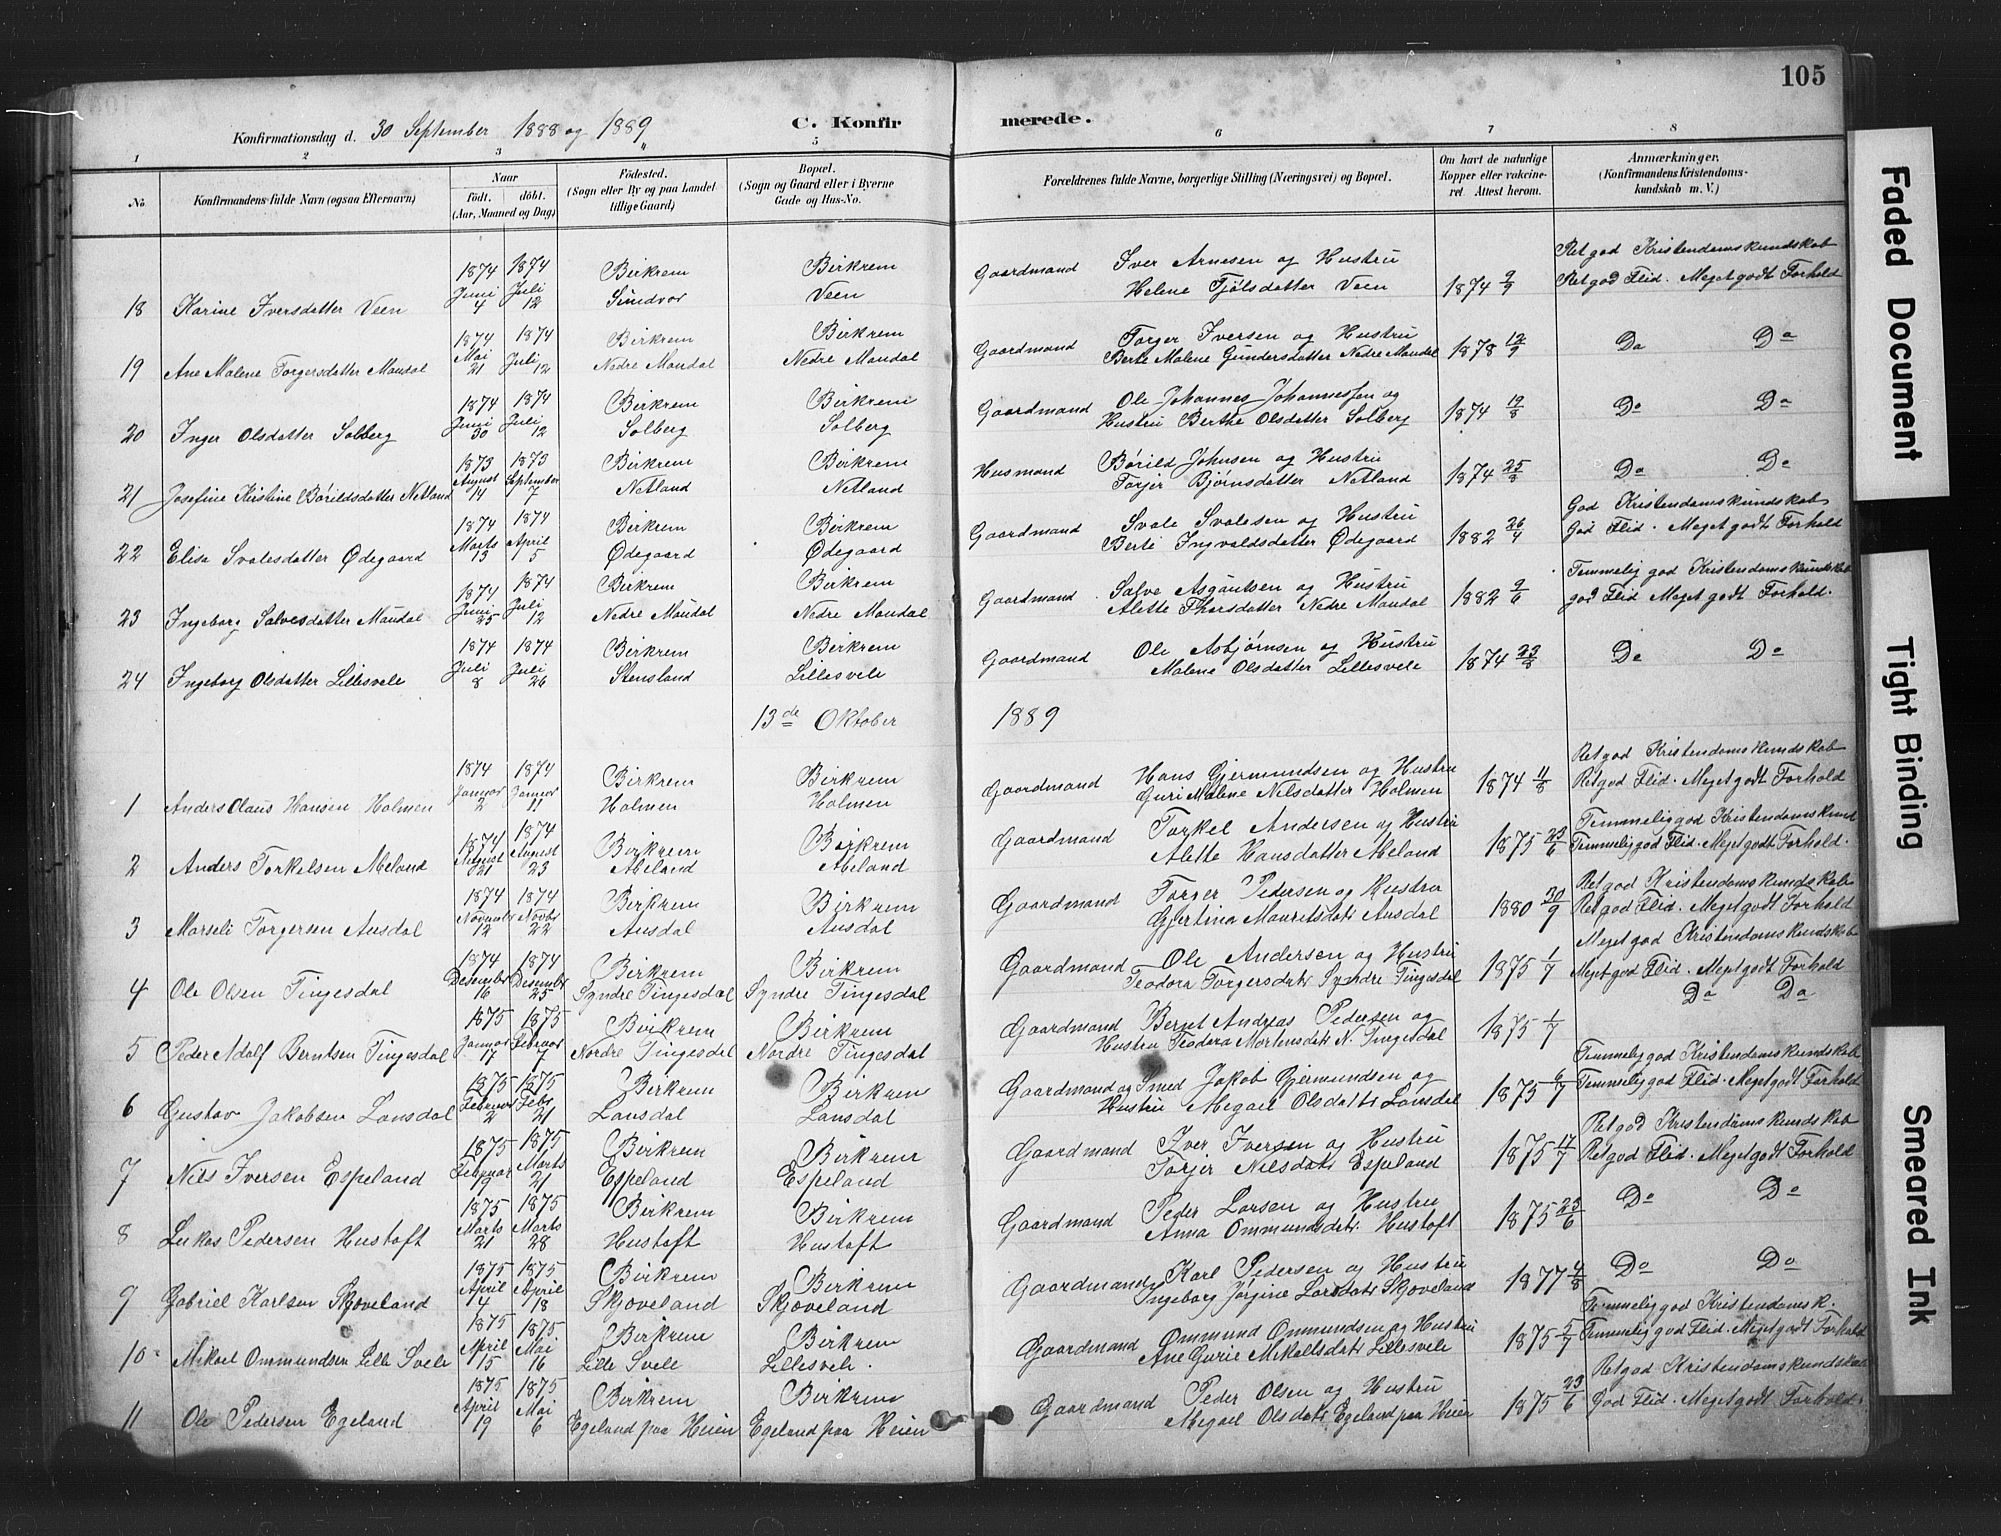 105
Konfirmationsdag d. 30 September 1888 og 1889
C. Konfirmerede.
1 2 3 4 5 6 7 8
No
Konfirmandens fulde Navn (ogsaa Efternavn)
Naar
Født. døbt.
(Aar, Maaned og Dag)
Fødested.
(Sogn eller By og paa Landet tillige Gaard)
Bopæl.
(Sogn og Gaard eller i Byerne Gade og Hus-No.
Forældrenes fulde Navne, borgerlige Stilling (Næringsvei) og Bopæl.
Om havt de naturlige Kopper eller vakcineret. Attest herom.
Anmærkninger.
(Konfirmandens Kristendomskundskab m. V.)
18 Karine Iversdatter Veen 1874 Juni 4 1874 Juli 12 Birkrem Sundvor Birkrem Veen Gaardmand Iver Arnesen og Hustru Helene Tjølsdatter Veen 1874 9/9 Ret god Kristendomskundskab Ret god Flid. Meget godt Forhold
19 Ane Malene Torgersdatter Maudal 1874 Mai 21 1874 Juli 12 Birkrem Nedre Maudal Birkrem Nedre Maudal Gaardmand Torger Iversen og Hustru Berte Malene Gundersdatter Nedre Maudal 1878 12/9 Do Do
20 Inger Olsdatter Solberg 1874 Juni 30 1874 Juli 12 Birkrem Solberg Birkrem Solberg Gaardmand Ole Johannes Johannessen og Hustru Berthe Olsdatter Solberg 1874 19/8 Do Do
21 Josefine Kristine Børildsdatter Netland 1873 August 14 1873 September 7 Birkrem Netland Birkrem Netland Husmand Børild Johnsen og Hustru Torjer Bjørnsdatter Netland 1874 25/8 Do Do
22 Elisa Svalesdatter Ødegaard 1874 Marts 13 1874 April 5 Birkrem Ødegaard Birkrem Ødegaard Gaardmand Svale Svalesen og Hustru Berte Ingvaldsdatter Ødegaard 1882 26/4 God Kristendomskundskab God Flid. Meget godt Forhold
23 Ingeborg Salvesdatter Maudal 1874 Juni 25 1874 Juli 12 Birkrem Nedre Maudal Birkrem Nedre Maudal Gaardmand Salve Asgautsen og Hustru Alette Thorsdatter Nedre Maudal 1882 9/6 Temmelig god Kristendomskundskab god Flid Meget godt Forhold.
24 Ingeborg Olsdatter Lillesvele 1874 Juli 8 1874 Juli 26 Birkrem Stensland Birkrem Lillesvele Gaardmand Ole Asbjørnsen og Hustru Malene Olsdatter Lillesvele 1874 23/8 Do Do
13de Oktober 1889
1 Anders Claus Hansen Holmen 1874 Januar 2 1874 Januar 11 Birkrem Holmen Birkrem Holmen Gaardmand Hans Gjermundsen og Hustru Guri Malene Nilsdatter Holmen 1874 11/8 Ret god Kristendomskundskab Ret god Flid. Meget godt Forhold
2 Anders Torkelsen Meland 1874 August 21 1874 August 23 Birkrem Meland Birkrem Meland Gaardmand Torkel Andersen og Hustru Alette Hansdatter Meland 1875 23/6 Temmelig god Kristendomskund Temmelig god Flid. Meget godt Forhold.
3 Marseli Torgersen Ausdal 1874 Novembr 12 1874 Novbr 22 Birkrem Ausdal Birkrem Ausdal Gaardmand Torger Pedersen og Hustru Gjertina Mauritsdatr Ausdal 1880 30/9 Ret god Kristendomskundskab Ret god Flid. Meget godt Forhold
4 Ole Olsen Tingesdal 1874 Desembr 16 1874 Desembr 25 Birkrem Syndre Tingesdal Birkrem Syndre Tingesdal Gaardmand Ole Andersen og Hustru Teodora Torgersdatr Syndre Tingesdal 1875 1/7 Meget god Kristendomskundskab Meget god Flid. Meget godt Forhold
5 Peder Adolf Berntsen Tingesdal 1875 Januar 17 1875 Februar 7 Birkrem Nordre Tingesdal Birkrem Nordre Tingesdal Gaardmand Bernt Andreas Pedersen og Hustru Teodora Mortensdatr N. Tingesdal 1875 1/7 Do Do
6 Gustav Jakobsen Lonsdal 1875 Februar 2 1875 Febr 21 Birkrem Lonsdal Birkrem Lonsdal Gaardmand og Smed Jakob Gjermundsen og Hustru Megael Olsdatr Lonsdal 1875 6/7 Temmelig god Kristendomskundskab Temmelig god Flid. Meget godt Forhold
7 Nils Iversen Espeland 1875 Februar 19 1875 Marts 21 Birkrem Espeland Birkrem Espeland Gaardmand Iver Iversen og Hustru Torjer Nilsdatr Espeland 1875 17/7 Ret god Kristendomskundskab Ret god Flid. Meget godt Forhold
8 Lukas Pedersen Hustoft 1875 Marts 21 1875 Marts 28 Birkrem Hustoft Birkrem Hustoft Gaardmand Peder Larsen og Hustru Anna Ommundsdatr Hustoft 1875 23/6 Do Do
9 Gabriel Karlsen Skjæveland 1875 April 4 1875 April 18 Birkrem Skjæveland Birkrem Skjæveland Gaardmand Karl Pedersen og Hustru Ingeborg Jørgine Larsdatr Skjæveland 1877 4/8 Do Do
10 Mikael Ommundsen Lille Svele 1875 April 15 1875 Mai 16 Birkrem Lille Svele Birkrem Lillesvele. Gaardmand Ommund Ommundsen og Hustru Ane Gurie Mikalsdatr Lillesvele 1875 5/7 Temmelig god Kristendomsk. Temmelig god Flid. Meget godt Forhold
11 Ole Pedersen Egeland 1875 April 19 1875 Mai 6 Birkrem Egeland paa Heien Birkrem Egeland paa Heien Gaardmand Peder Olsen og Hustru Megael Olsdatr Egeland paa Heien 1875 23/6 Ret god Kristendomskundskab God Flid. Meget godt Forhold.
Faded Document
Tight Binding
Smeared Ink